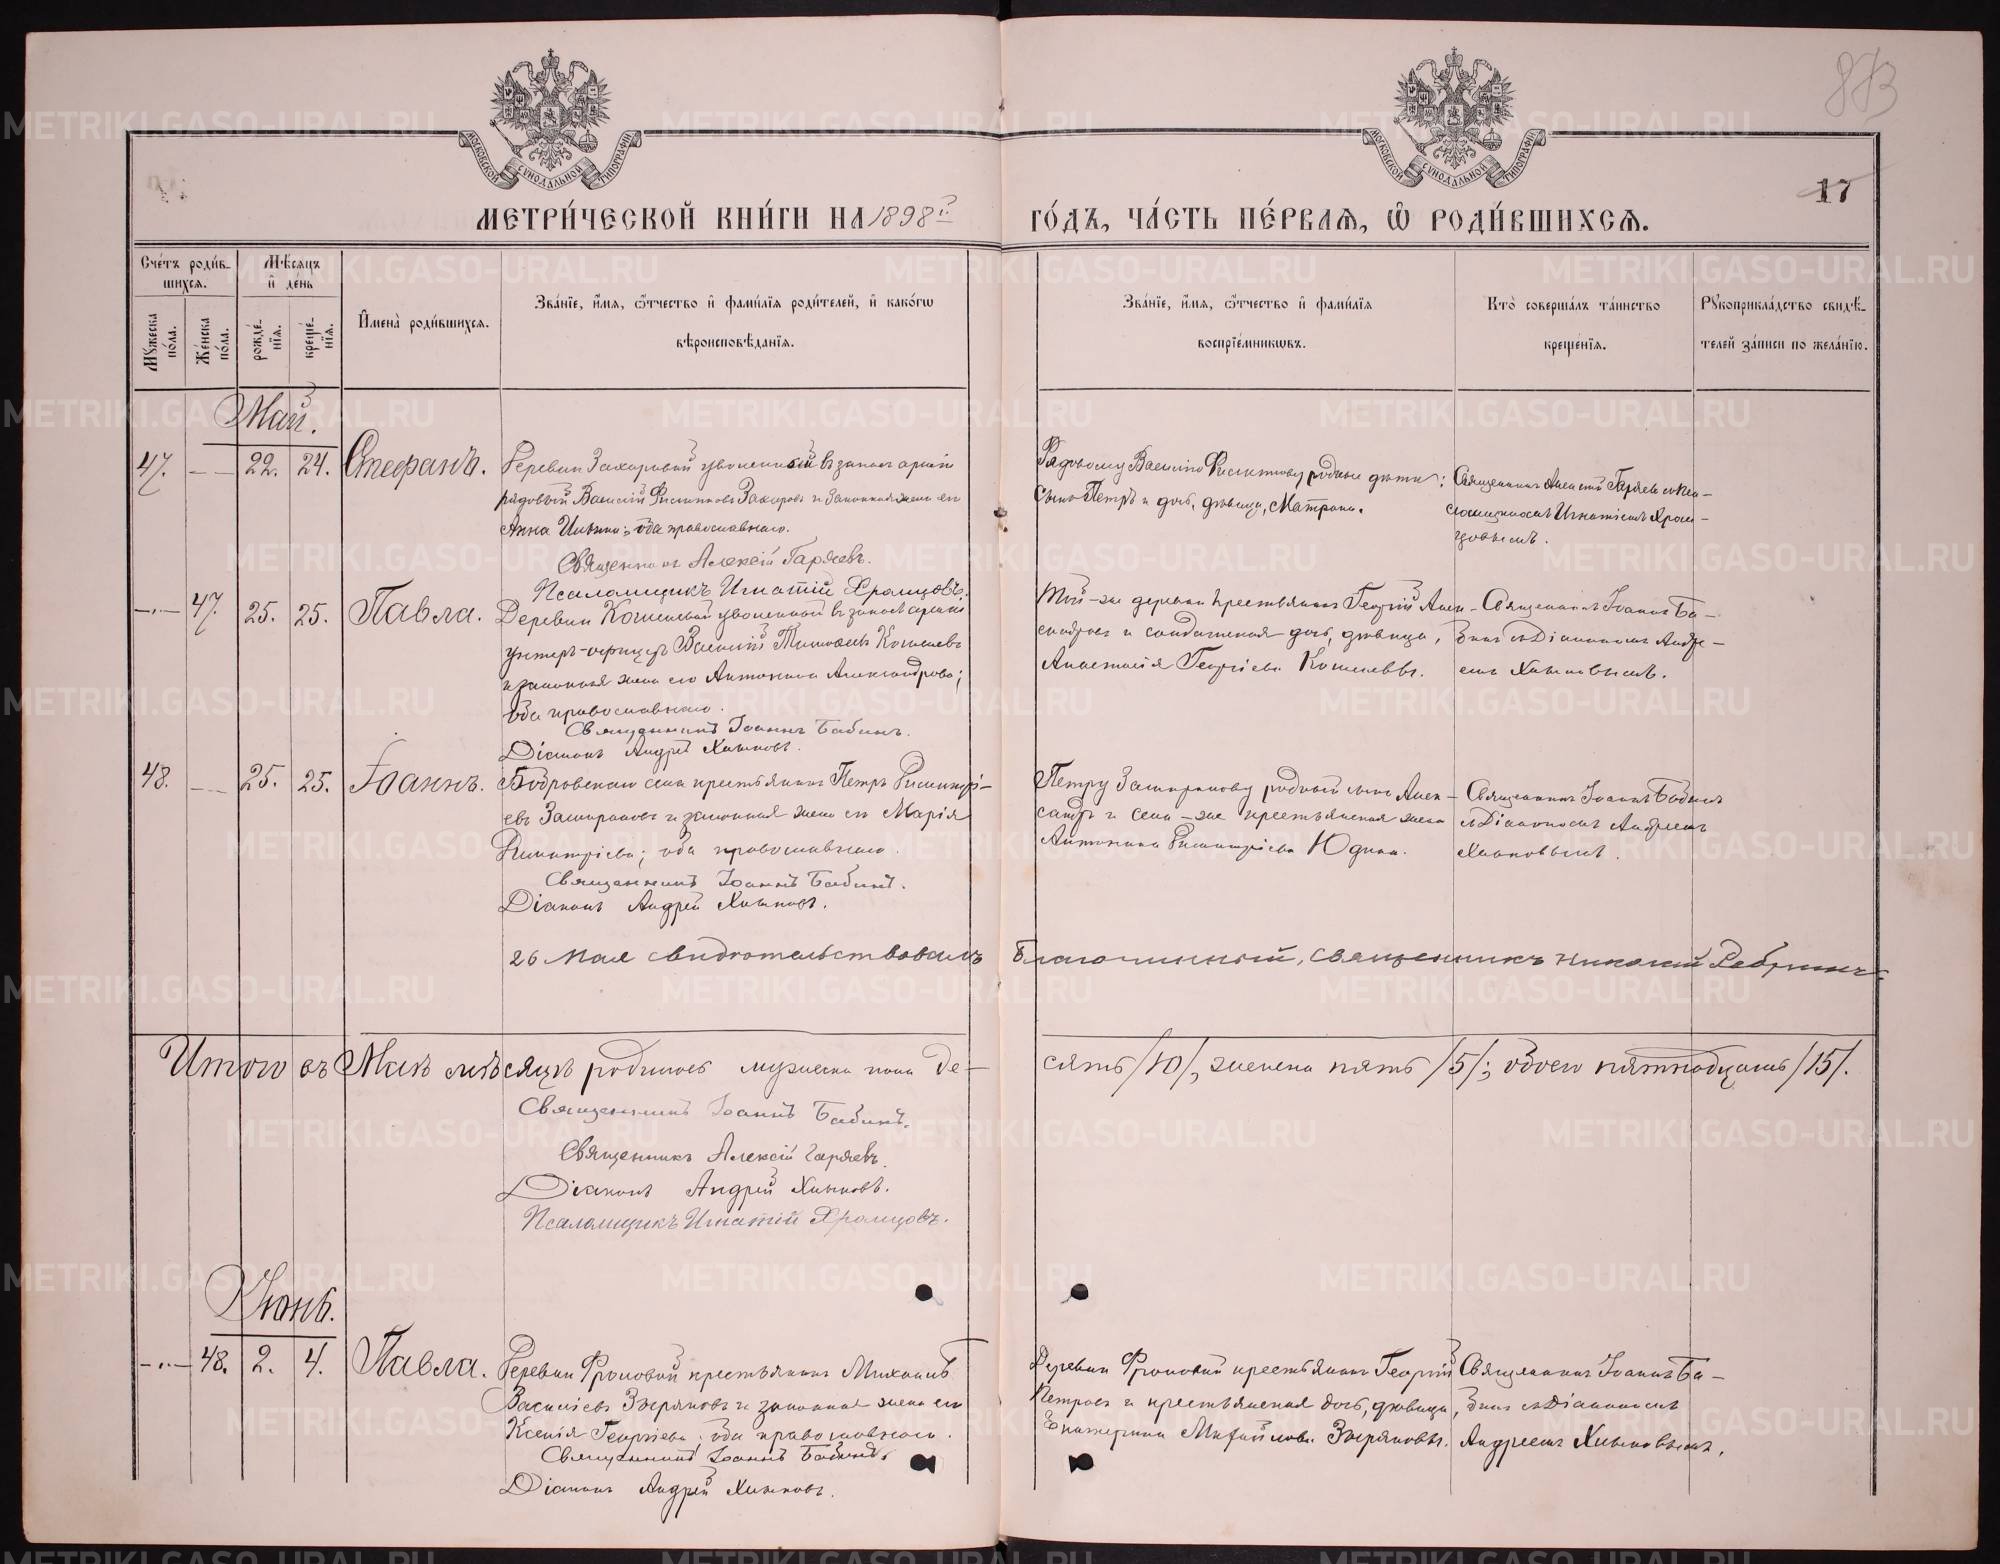 883
17
МОСКОВСКОЙ СУНОДАЛЬНОЙ ТИПОГРАФІИ
МОСКОВСКОЙ СУНОДАЛЬНОЙ ТИПОГРАФІИ
МЕТРИ́ЧЕСКОЙ КНИ́ГИ НА 1898й ГО́ДЪ, ЧА́СТЬ ПЕ́РВАЯ, Ѡ РОДИ́ВШИХСЯ.
Сче́тъ роди́в-
шихся.
Мѣ́сяцъ
и҆ де́нь
Мꙋ́жеска
по́ла.
Же́нска
по́ла.
рожде́-
нїя.
креще́-
нїя.
И҆мена̀ роди́вшихся.
Зва́нїе, и҆́мя, ѻ҆́тчество и҆ фами́лїя роди́телей, и҆ како́гѡ
вѣроисповѣ́данїя.
Зва́нїе, и҆́мя, ѻ҆́тчество и҆ фами́лїя
воспрїе́мникѡвъ.
Кто̀ соверша́лъ та́инство
креще́нїя.
Рꙋкоприкла́дство свидѣ́-
телей за́писи по жела́нїю.
Май.
47. 22. 24. Стефанъ.
Деревни Захаровой уволенный въ запасъ арміи
рядовый Василій Захаровъ и законная жена его
Анна Ильина; оба православнаго.
Священникъ Алексій Гаряевъ.
Псаломщикъ Игнатій Храмцовъ.
Рядовому Василію родные дѣти:
сынъ Петръ и дочь, дѣвица, Матрона.
Священникъ Алексій Гаряевъ съ Пса-
ломщикомъ Игнатіемъ Храм-
цовымъ.
47. 25. 25. Павла.
Деревни Кошелевой уволенный въ запасъ арміи
унтеръ-офицеръ Василій Кошелевъ
и законная жена его Антонина Александрова;
оба православнаго.
Священникъ Іоаннъ Бабинъ.
Діаконъ Андрей Хлыновъ.
Той-же деревни крестьянинъ Георгій Алек-
сандровъ и солдатская дочь, дѣвица,
Анастасія Георгіева Кошелевы.
Священникъ Іоаннъ Ба-
бинъ съ Діакономъ Андре-
емъ Хлыновымъ.
48. 25. 25. Іоаннъ.
Бобровскаго села крестьянинъ Петръ Димитрі-
евъ и законная жена его Марія
Димитріева; оба православнаго.
Священникъ Іоаннъ Бабинъ.
Діаконъ Андрей Хлыновъ.
Петру родный сынъ Алек-
сандръ и села-же крестьянская жена
Антонина Димитріева Юдина.
Священникъ Іоаннъ Бабинъ
съ Діакономъ Андреемъ
Хлыновымъ.
26 Мая свидѣтельствовалъ Благочинный, священникъ Николай
Итого въ Маѣ мѣсяцѣ родилось мужеска пола де-сять /10/, женска пять /5/; обоего пятнадцать /15/.
Священникъ Іоаннъ Бабинъ.
Священникъ Алексій Гаряевъ.
Діаконъ Андрей Хлыновъ.
Псаломщикъ Игнатій Храмцовъ.
Іюнь.
48. 2. 4. Павла.
Деревни Фроловой крестьянинъ Михаилъ
Василіевъ Зыряновъ и законная жена его
Ксенія Георгіева; оба православнаго.
Священникъ Іоаннъ Бабинъ.
Діаконъ Андрей Хлыновъ.
Деревни Фроловой крестьянинъ Георгій
Петровъ и крестьянская дочь, дѣвица,
Екатерина Михайлова Зыряновы.
Священникъ Іоаннъ Ба-
бинъ съ Діакономъ
Андреемъ Хлыновымъ.
METRIKI.GASO-URAL.RU